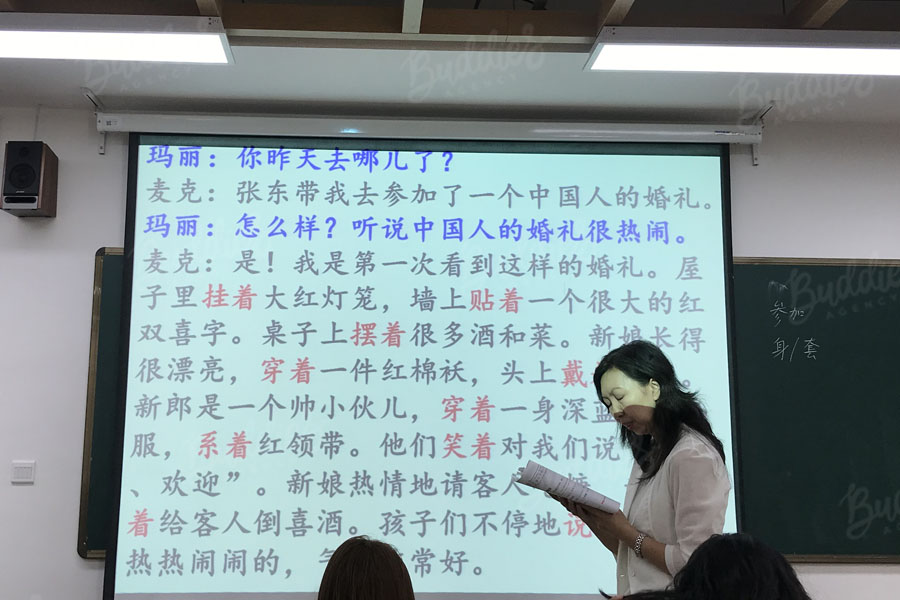 玛丽：你昨天去哪儿了？
麦克：张东带我去参加了一个中国人的婚礼。
玛丽：怎么样？听说中国人的婚礼很热闹。
麦克：是！我是第一次看到这样的婚礼。屋
子里挂着大红灯笼，墙上贴着一个很大的红
双喜字。桌子上摆着很多酒和菜。新娘长得
很漂亮，穿着一件红棉袄，头上戴
新郎是一个帅小伙儿，穿着一身深蓝
服，系着红领带。他们笑着对我们说
、欢迎”。新娘热情地请客人
着给客人倒喜酒。孩子们不停地说
热热闹闹的，常好。
参加
身/套
Buddies
AGENCY
Buddies
AGENCY
Buddies
AGENCY
Buddies
AGENCY
Buddies